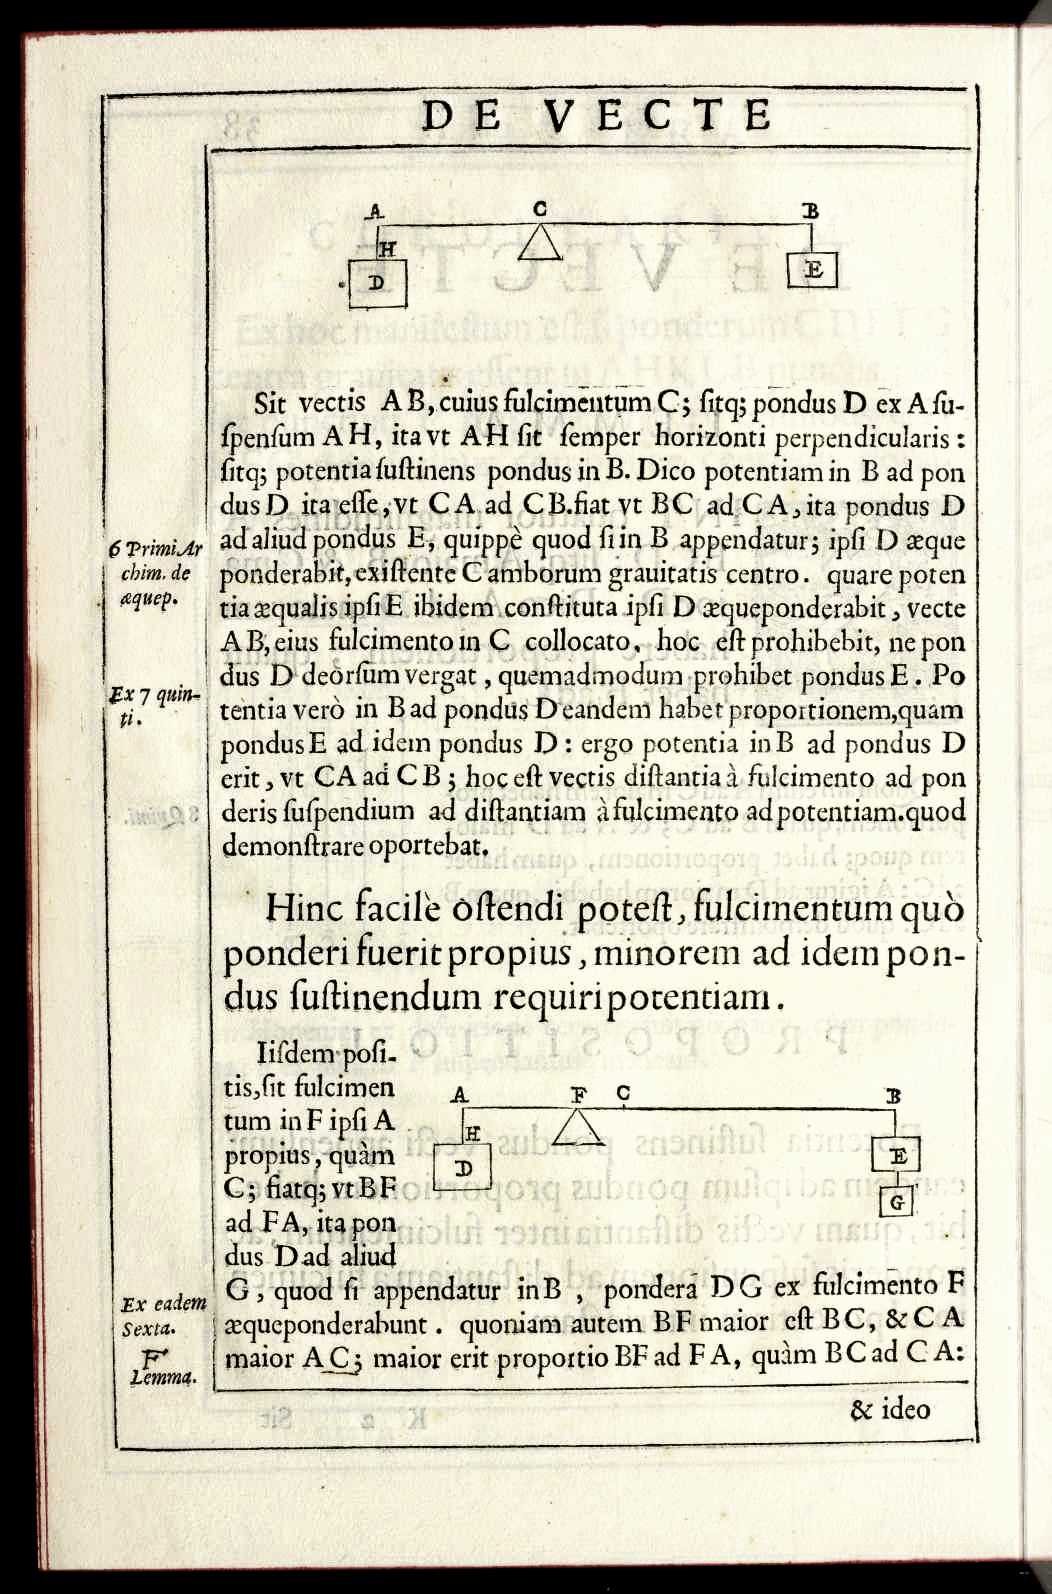 DE VECTE
A C B
H
D E
Sit vectis AB, cuius fulcimentum C; sitq; pondus D ex A su-
spensum AH, ita vt AH sit semper horizonti perpendicularis:
sitq; potentia sustinens pondus in B. Dico potentiam in B ad pon
dus D ita esse, vt CA ad CB. fiat vt BC ad CA, ita pondus D
6 Primi Ar
chim. de
æquep.
ad aliud pondus E, quippè quod si in B appendatur; ipsi D æque
ponderabit, existente C amborum grauitatis centro. quare poten
tia æqualis ipsi E ibidem constituta ipsi D æqueponderabit, vecte
AB, eius fulcimento in C collocato, hoc est prohibebit, ne pon
dus D deorsum vergat, quemadmodum prohibet pondus E. Po
Ex 7 quin-
ti.
tentia verò in B ad pondus D eandem habet proportionem, quam
pondus E ad idem pondus D: ergo potentia in B ad pondus D
erit, vt CA ad CB; hoc est vectis distantia à fulcimento ad pon
deris suspendium ad distantiam à fulcimento ad potentiam. quod
demonstrare oportebat.
Hinc facilè ostendi potest, fulcimentum quò
ponderi fuerit propius, minorem ad idem pon-
dus sustinendum requiri potentiam.
Iisdem posi-
tis, sit fulcimen
tum in F ipsi A
propius, quàm
C; fiatq; vt BF
ad FA, ita pon
dus D ad aliud
A F C B
H
D E
G
G, quod si appendatur in B, pondera DG ex fulcimento F
Ex eadem
Sexta.
æqueponderabunt. quoniam autem BF maior est BC, & CA
F
Lemma.
maior AC; maior erit proportio BF ad FA, quàm BC ad CA:
& ideo